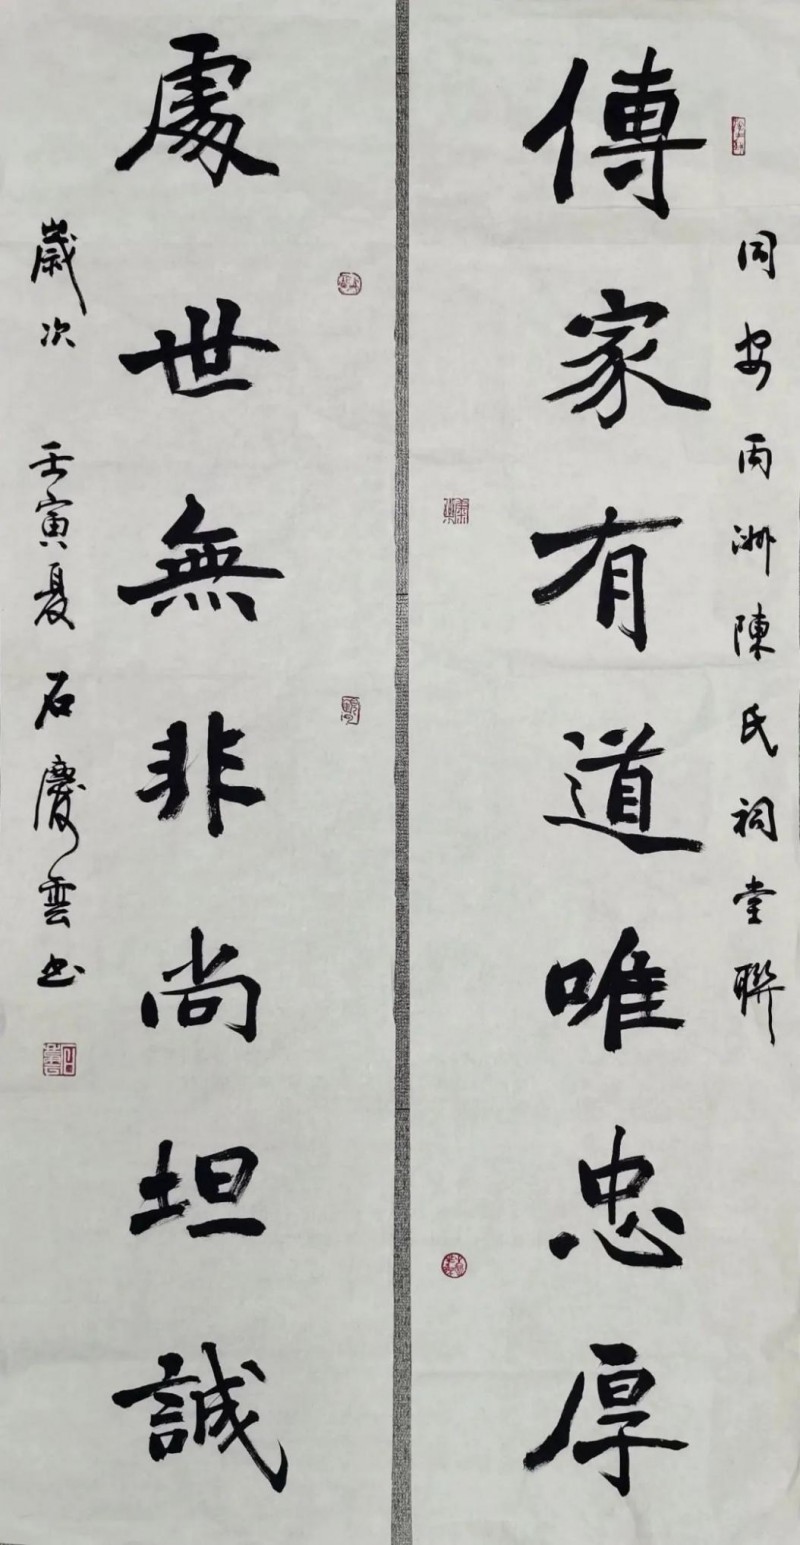 同安丙洲陳氏祠堂聯
傳家有道唯忠厚
處世無非尚坦誠
歲次壬寅夏石慶雲书